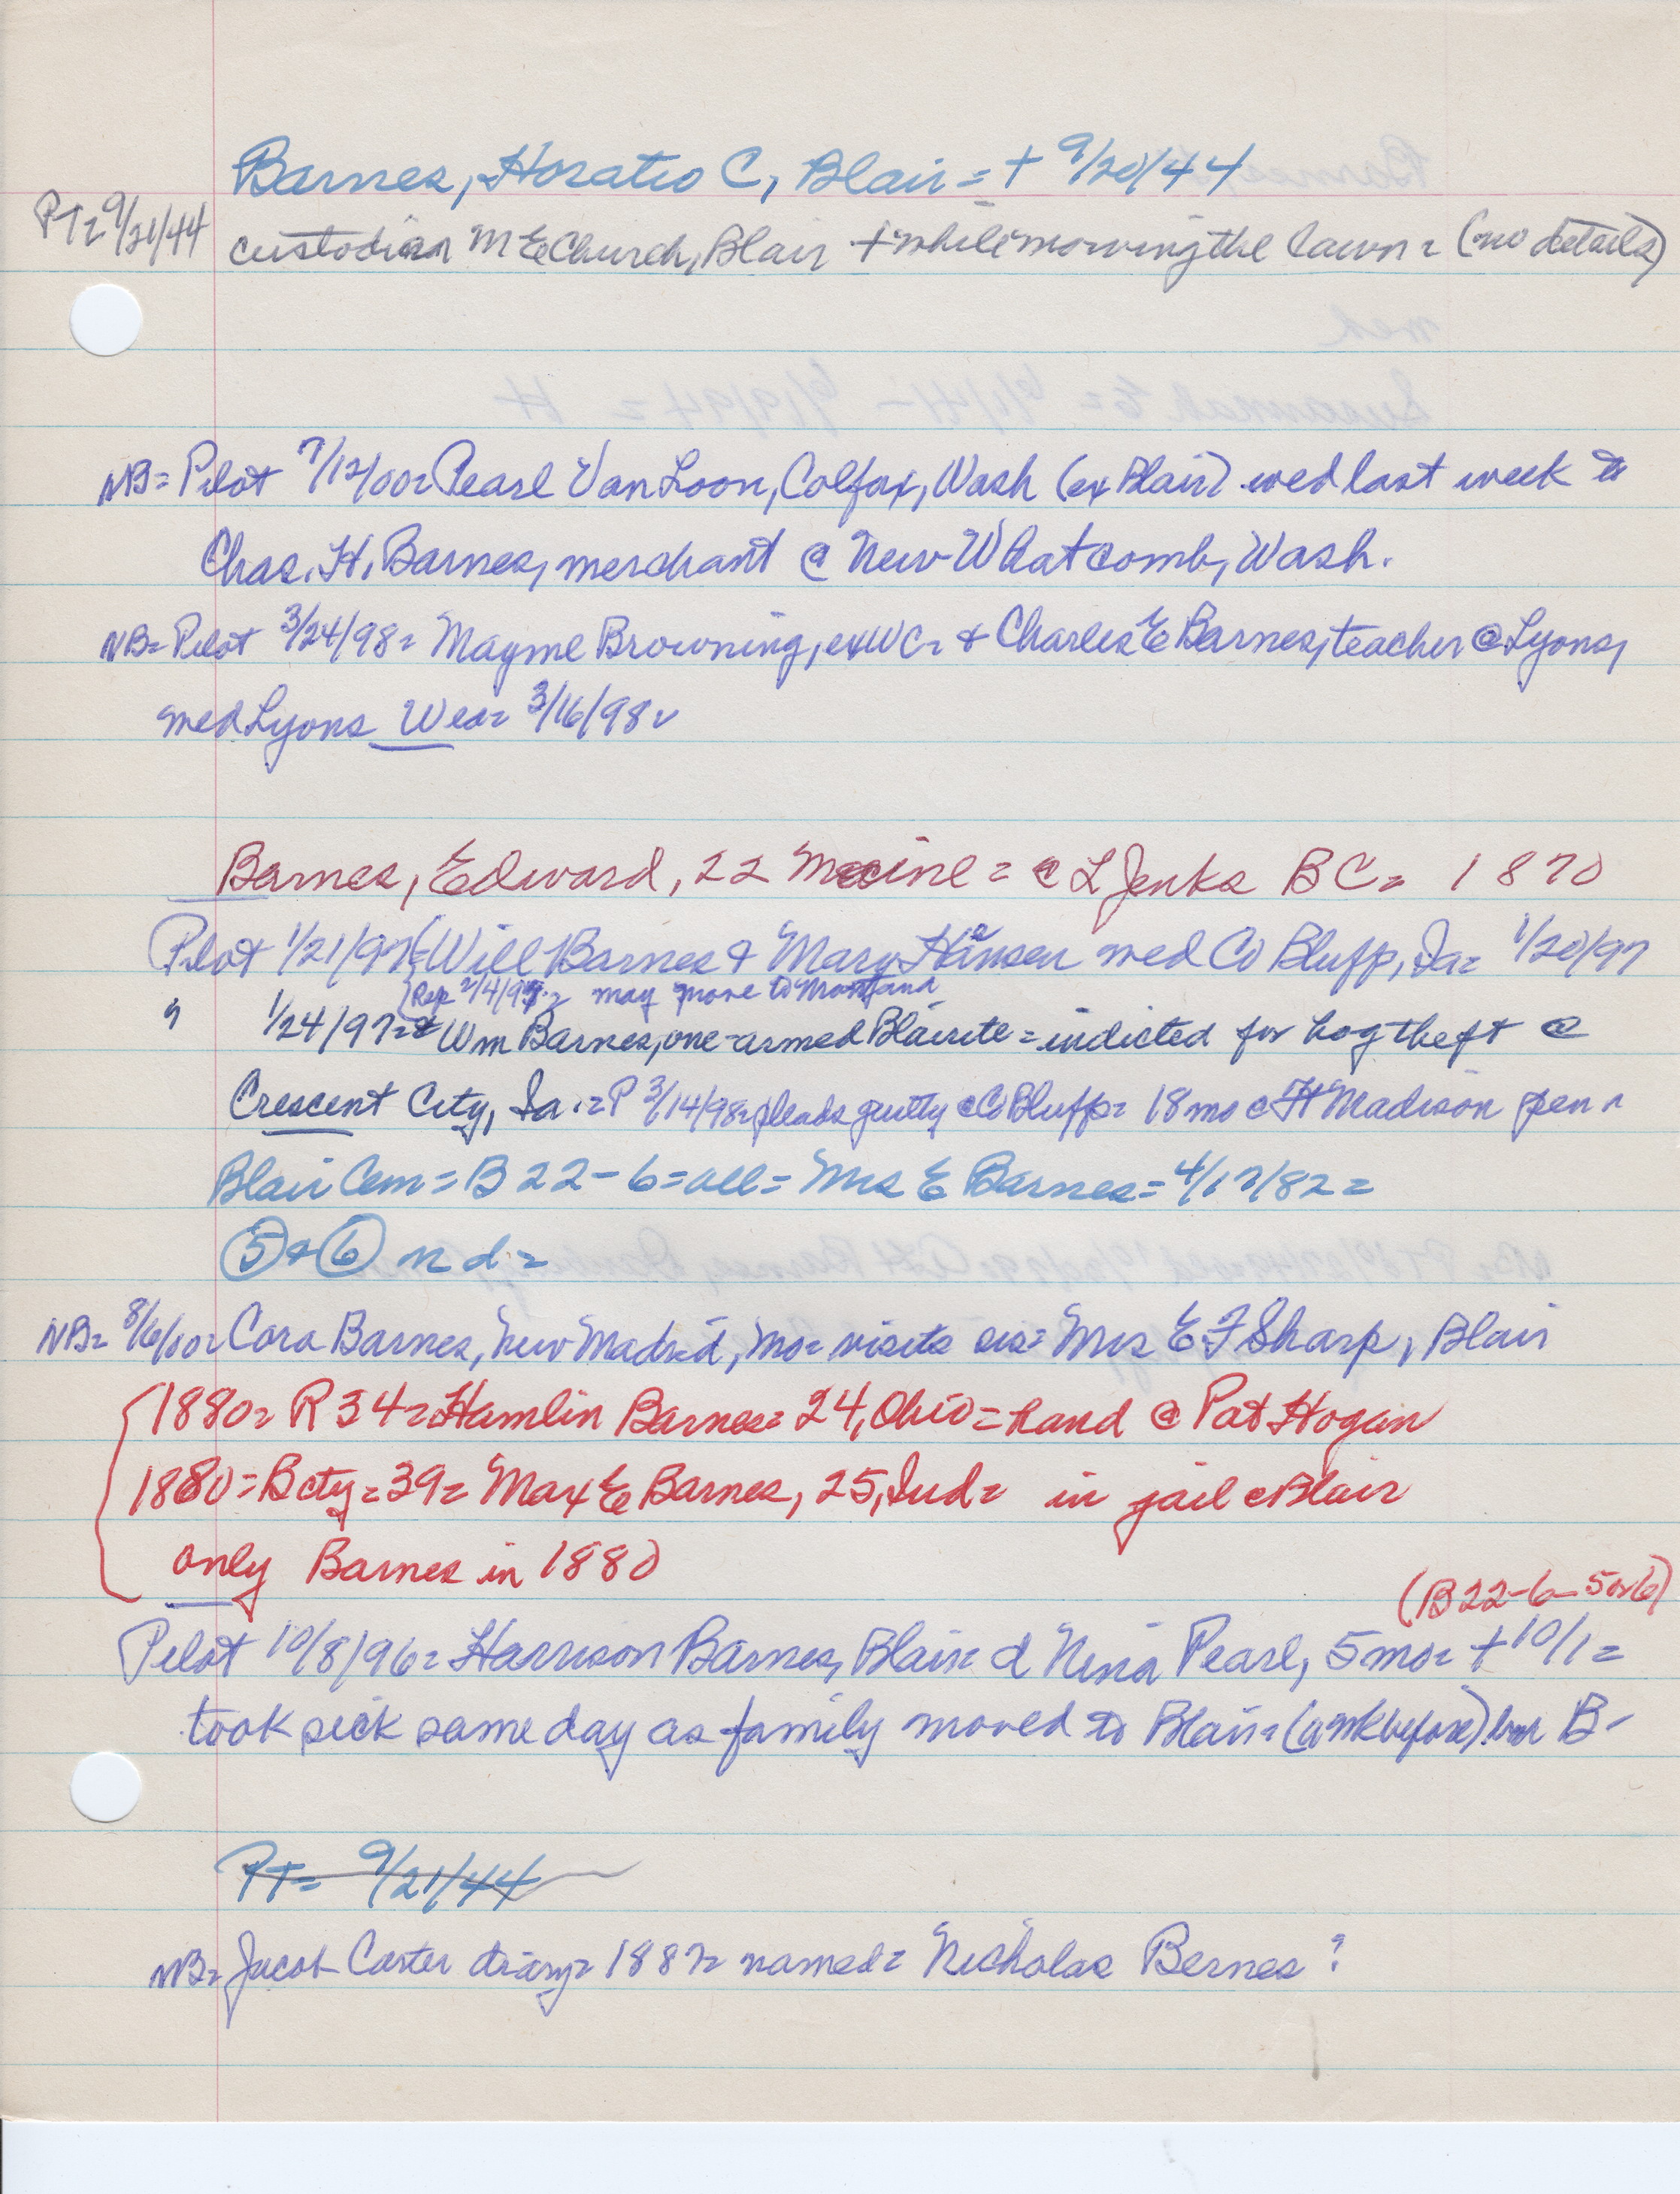 Barnes, Horatio C, Blair = + 9/20/44
PT= 9/21/44 custodian M E Church, Blair + while mowing the lawn = (no details)
NB= Pilot 7/12/00= Pearl Van Loon, Colfax, Wash (ex Blair) wed last week to
Chas. H. Barnes, merchant @ New Whatcomb, Wash.
NB= Pilot 3/24/98= Mayme Browning, ex WC= & Charles E Barnes, teacher @ Lyons,
med Lyons Wed= 3/16/98
Barnes, Edward, 22 = @ L Jenks BC= 1870
Pilot 1/21/97= Will Barnes & Mary Hansen med Co Bluff, Ia= 1/20/97
(Rep 2/4/97= may move to Montana
" 1/24/97= Wm Barnes, one-armed Blairite = indicted for hog theft @
Crescent City, Ia. = P 3/14/98= pleads guilty @ Co Bluff= 18 mo @ Ft Madison pen
Blair Cem = B 22-6 = all = Mrs E Barnes = 4/17/82 =
5 & 6 n d =
NB= 8/6/00= Cora Barnes, New Madrid, Mo= visits sis= Mrs E F Sharp, Blair
1880= R 34= Hamlin Barnes= 24, Ohio = hand @ Pat Hogan
1880= B cty= 39= Max E Barnes, 25, Ind= in jail @ Blair
only Barnes in 1880
(B 22-6- 5 or 6)
Pilot 10/8/96= Harrison Barnes, Blair= d Nina Pearl, 5 mo= + 10/1 =
took sick same day as family moved to Blair= (a wk before) bur B-
PT= 9/21/44
NB= Jacob Carter diary= 1887= named= Nicholas Bernes?